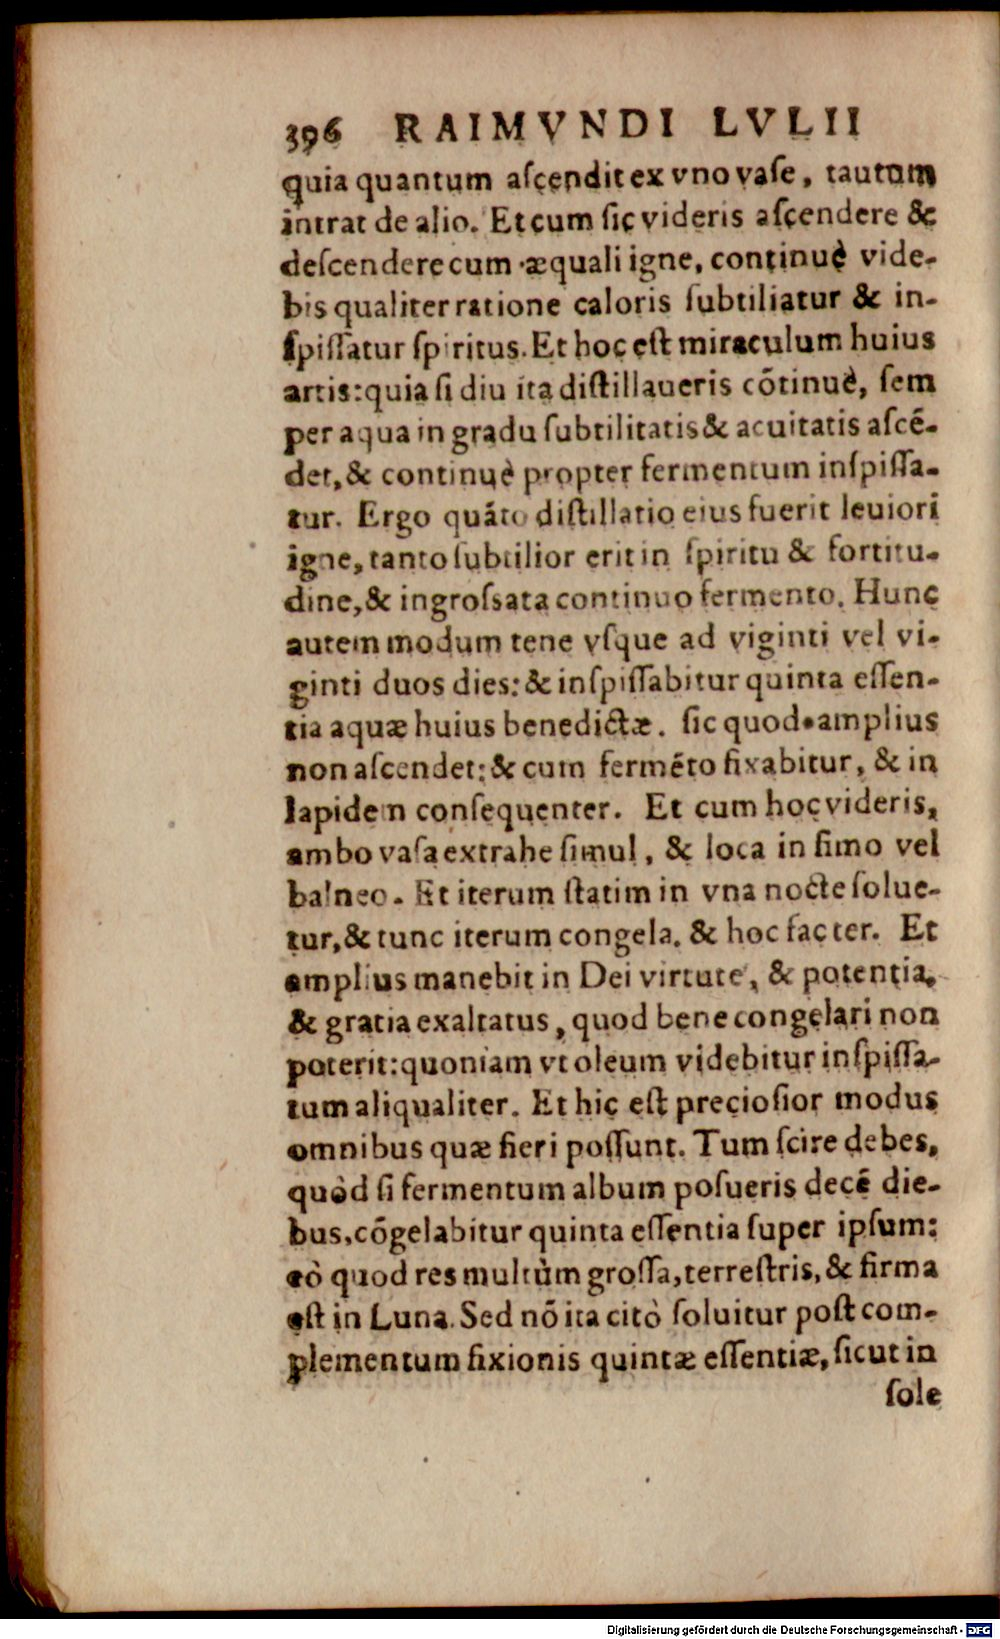 396 RAIMVNDI LVLII
quia quantum aſcendit ex vno vaſe, tautum
intrat de alio. Et cum ſic videris aſcendere &
deſcendere cum æquali igne, continuè vide-
bis qualiter ratione caloris ſubtiliatur & in-
ſpiſſatur ſpiritus. Et hoc eſt miraculum huius
artis: quia ſi diu ita diſtillaueris cõtinuè, ſem
per aqua in gradu ſubtilitatis & acuitatis aſcẽ-
det, & continuè propter fermentum inſpiſſa-
tur. Ergo quãto diſtillatio eius fuerit leuiori
igne, tanto ſubtilior erit in ſpiritu & fortitu-
dine, & ingroſsata continuo fermento. Hunc
autem modum tene vſque ad viginti vel vi-
ginti duos dies: & inſpiſſabitur quinta eſſen-
tia aquæ huius benedictæ. ſic quod amplius
non aſcendet: & cum fermẽto fixabitur, & in
lapidem conſequenter. Et cum hoc videris,
ambo vaſa extrahe ſimul, & loca in fimo vel
balneo. Et iterum ſtatim in vna nocte ſolue-
tur, & tunc iterum congela. & hoc fac ter. Et
amplius manebit in Dei virtute, & potentia,
& gratia exaltatus, quod bene congelari non
poterit: quoniam vt oleum videbitur inſpiſſa-
tum aliqualiter. Et hic eſt precioſior modus
omnibus quæ fieri poſſunt. Tum ſcire debes,
quòd ſi fermentum album poſueris decẽ die-
bus, cõgelabitur quinta eſſentia ſuper ipſum:
eò quod res multùm groſſa, terreſtris, & firma
eſt in Luna. Sed nõ ita citò ſoluitur poſt com-
plementum fixionis quintæ eſſentiæ, ſicut in
ſole
Digitalisierung gefördert durch die Deutsche Forschungsgemeinschaft - DFG